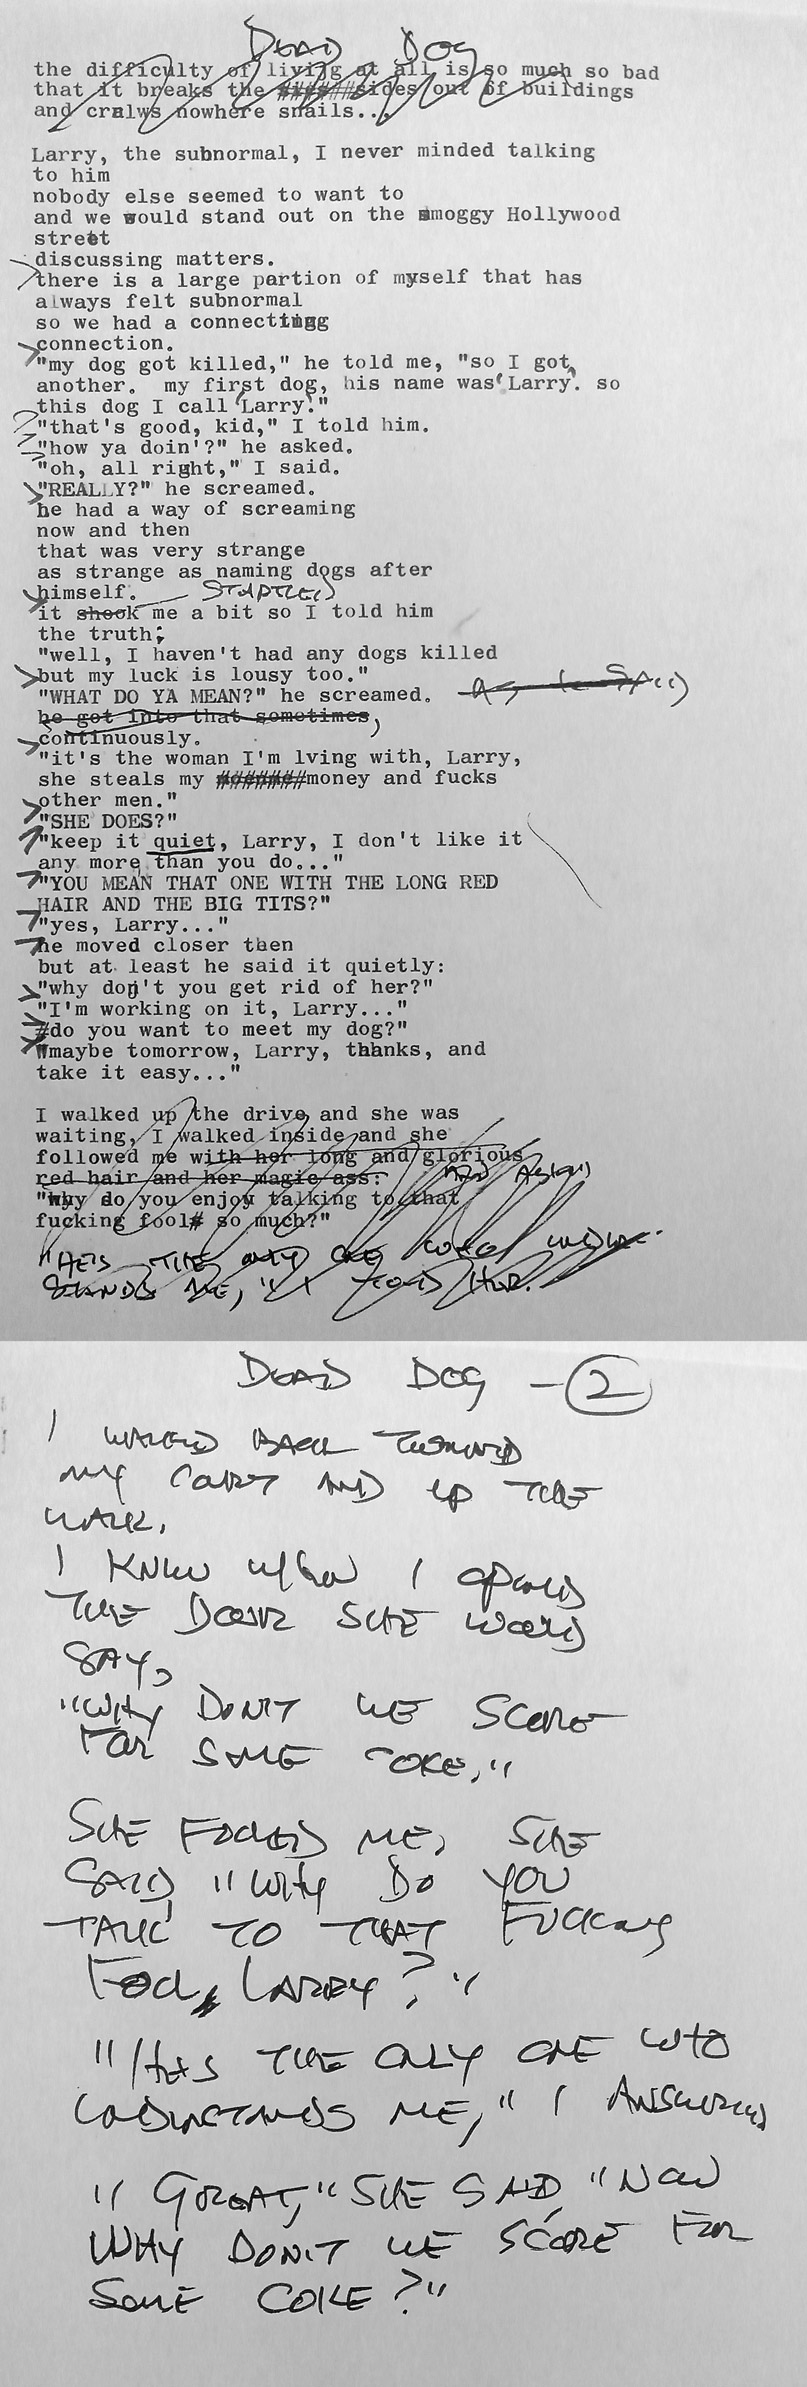 DEAD DOG
the difficulty of livijg at all is so much so bad
that it breaks the sides out of buildings
and cralws nowhere snails...
Larry, the subnormal, I never minded talking
to him
nobody else seemed to want to
and we would stand out on the smoggy Hollywood
street
discussing matters.
there is a large portion of myself that has
always felt subnormal
so we had a connecting
connection.
"my dog got killed," he told me, "so I got
another. my first dog, his name was 'Larry'. so
this dog I call 'Larry'."
"that's good, kid," I told him.
"how ya doin'?" he asked.
"oh, all right," I said.
"REALLY?" he screamed.
he had a way of screaming
now and then
that was very strange
as strange as naming dogs after
himself. STARTLED
it shook me a bit so I told him
the truth;
"well, I haven't had any dogs killed
but my luck is lousy too."
"WHAT DO YA MEAN?" he screamed. AS I SAID
he got into that sometimes,
continuously.
"it's the woman I'm lving with, Larry,
she steals my money and fucks
other men."
"SHE DOES?"
"keep it quiet, Larry, I don't like it
any more than you do..."
"YOU MEAN THAT ONE WITH THE LONG RED
HAIR AND THE BIG TITS?"
"yes, Larry..."
he moved closer then
but at least he said it quietly:
"why don't you get rid of her?"
"I'm working on it, Larry..."
"do you want to meet my dog?"
"maybe tomorrow, Larry, thanks, and
take it easy..."
I walked up the drive and she was
waiting, I walked inside and she
followed me with her long and glorious
red hair and her magic ass: AND
"why do you enjoy talking to that
fucking fool so much?"
"HE'S THE ONLY ONE WHO UNDER-
STANDS ME," I TOLD HER.
DEAD DOG - 2
I WALKED BACK TOWARD
MY COURT AND UP THE
WALK.
I KNEW WHEN I OPENED
THE DOOR SHE WOULD
SAY,
"WHY DON'T WE SCORE
FOR SOME COKE."
SHE FOOLED ME, SHE
SAID, "WHY DO YOU
TALK TO THAT FUCKING
FOOL, LARRY?"
"HE'S THE ONLY ONE WHO
UNDERSTANDS ME," I ANSWERED
"GREAT," SHE SAID, "NOW
WHY DON'T WE SCORE FOR
SOME COKE?"